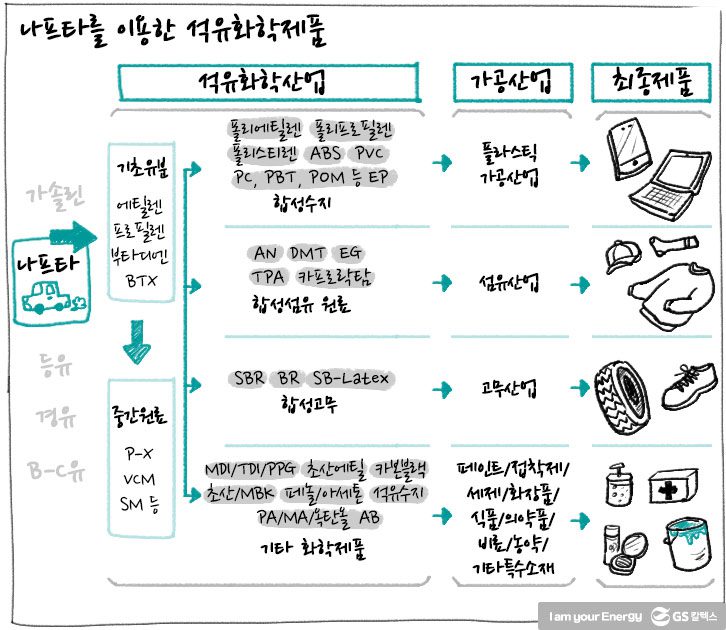 나프타를 이용한 석유화학제품
석유화학산업
가공산업
최종제품
가솔린
나프타
등유
경유
B-C유
기초유분
에틸렌
프로필렌
부타디엔
BTX
중간원료
P-X
VCM
SM 등
폴리에틸렌 폴리프로필렌
폴리스티렌 ABS PVC
PC, PBT, POM 등 EP
합성수지
플라스틱
가공산업
AN DMT EG
TPA 카프로락탐
합성섬유 원료
섬유산업
SBR BR SB-Latex
합성고무
고무산업
MDI/TDI/PPG 초산에틸 카본블랙
초산/MBK 페놀/아세톤 석유수지
PA/MA/옥탄올 AB
기타 화학제품
페인트/접착제/
세제/화장품/
식품/의약품/
비료/농약/
기타특수소재
I am your Energy GS칼텍스